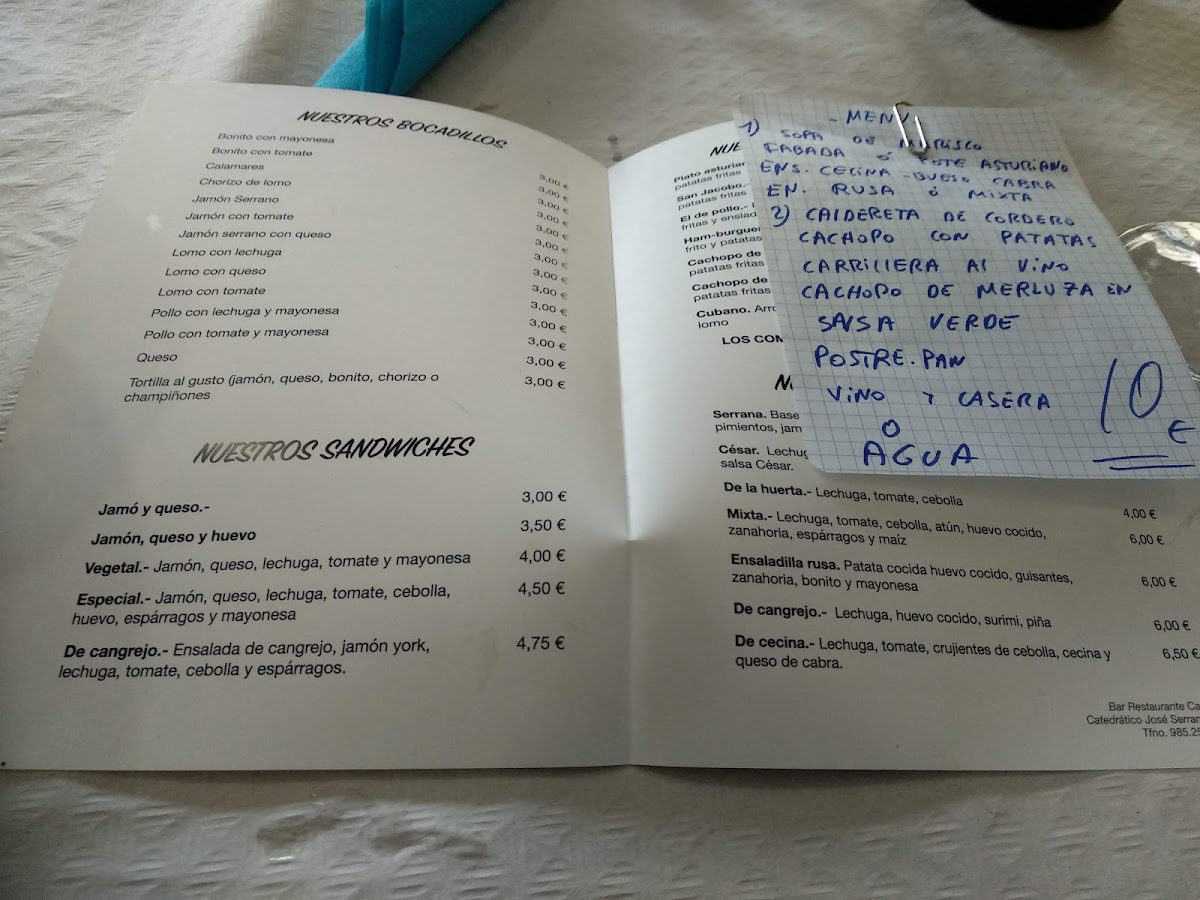 NUESTROS BOCADILLOS
Bonito con mayonesa
Bonito con tomate
Calamares
Chorizo de lomo 3,00 €
Jamón Serrano 3,00 €
Jamón con tomate 3,00 €
Jamón serrano con queso 3,00 €
Lomo con lechuga 3,00 €
Lomo con queso 3,00 €
Lomo con tomate 3,00 €
Pollo con lechuga y mayonesa 3,00 €
Pollo con tomate y mayonesa 3,00 €
Queso 3,00 €
3,00 €
Tortilla al gusto (jamón, queso, bonito, chorizo o 3,00 €
champiñones
NUESTROS SANDWICHES
Jamó y queso.- 3,00 €
Jamón, queso y huevo 3,50 €
Vegetal.- Jamón, queso, lechuga, tomate y mayonesa 4,00 €
Especial.- Jamón, queso, lechuga, tomate, cebolla, 4,50 €
huevo, espárragos y mayonesa
De cangrejo.- Ensalada de cangrejo, jamón york, 4,75 €
lechuga, tomate, cebolla y espárragos.
NUE
Plato asturian
patatas fritas
San Jacobo.-
patatas fritas
El de pollo.-
fritas y ensalad
Ham-burgue
frito y patatas
Cachopo de
patatas fritas
Cachopo de
patatas fritas
Cubano. Arro
lomo
LOS COM
Serrana. Base
pimientos, jam
César. Lechug
salsa César.
De la huerta.- Lechuga, tomate, cebolla 4,00 €
Mixta.- Lechuga, tomate, cebolla, atún, huevo cocido, 6,00 €
zanahoria, espárragos y maíz
Ensaladilla rusa. Patata cocida huevo cocido, guisantes, 6,00 €
zanahoria, bonito y mayonesa
De cangrejo.- Lechuga, huevo cocido, surimi, piña 6,00 €
De cecina.- Lechuga, tomate, crujientes de cebolla, cecina y 6,50 €
queso de cabra.
Bar Restaurante Ca
Catedrático José Serran
Tfno. 985.25
- MENU
1) SOPA DE MARISCO
FABADA Ó POTE ASTURIANO
ENS. CECINA - QUESO CABRA
EN. RUSA Ó MIXTA
2) CALDERETA DE CORDERO
CACHOPO CON PATATAS
CARRILLERA AL VINO
CACHOPO DE MERLUZA EN
SALSA VERDE
POSTRE. PAN
VINO Y CASERA
O
AGUA
10 €